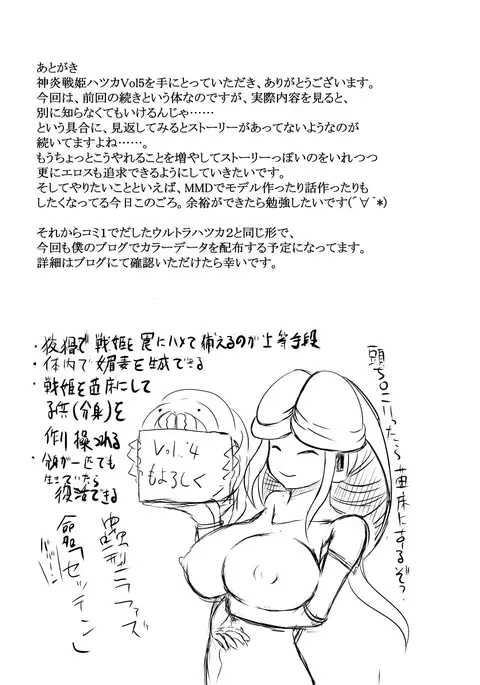 あとがき
神炎戦姫ハツカVol5を手にとっていただき、ありがとうございます。
今回は、前回の続きという体なのですが、実際内容を見ると、
別に知らなくてもいけるんじゃ……
という具合に、見返してみるとストーリーがあってないようなのが
続いてますよね……。
もうちょっとこうやれることを増やしてストーリーっぽいのをいれつつ
更にエロスも追求できるようにしていきたいです。
そしてやりたいことといえば、MMDでモデル作ったり話作ったりも
したくなってる今日このごろ。余裕ができたら勉強したいです(´∀｀*)
それからコミ1でだしたウルトラハツカ2と同じ形で、
今回も僕のブログでカラーデータを配布する予定になってます。
詳細はブログにて確認いただけたら幸いです。
・狡猾で戦姫を罠にハメて捕えるのが上等手段
・体内で媚毒を生成できる
・戦姫を苗床にして
子供(分身)を
作り操れる
一匹でも
生きていたら
復活できる
命名「セッテン」
Vol.4
もよろしく
苗床にするぞ?